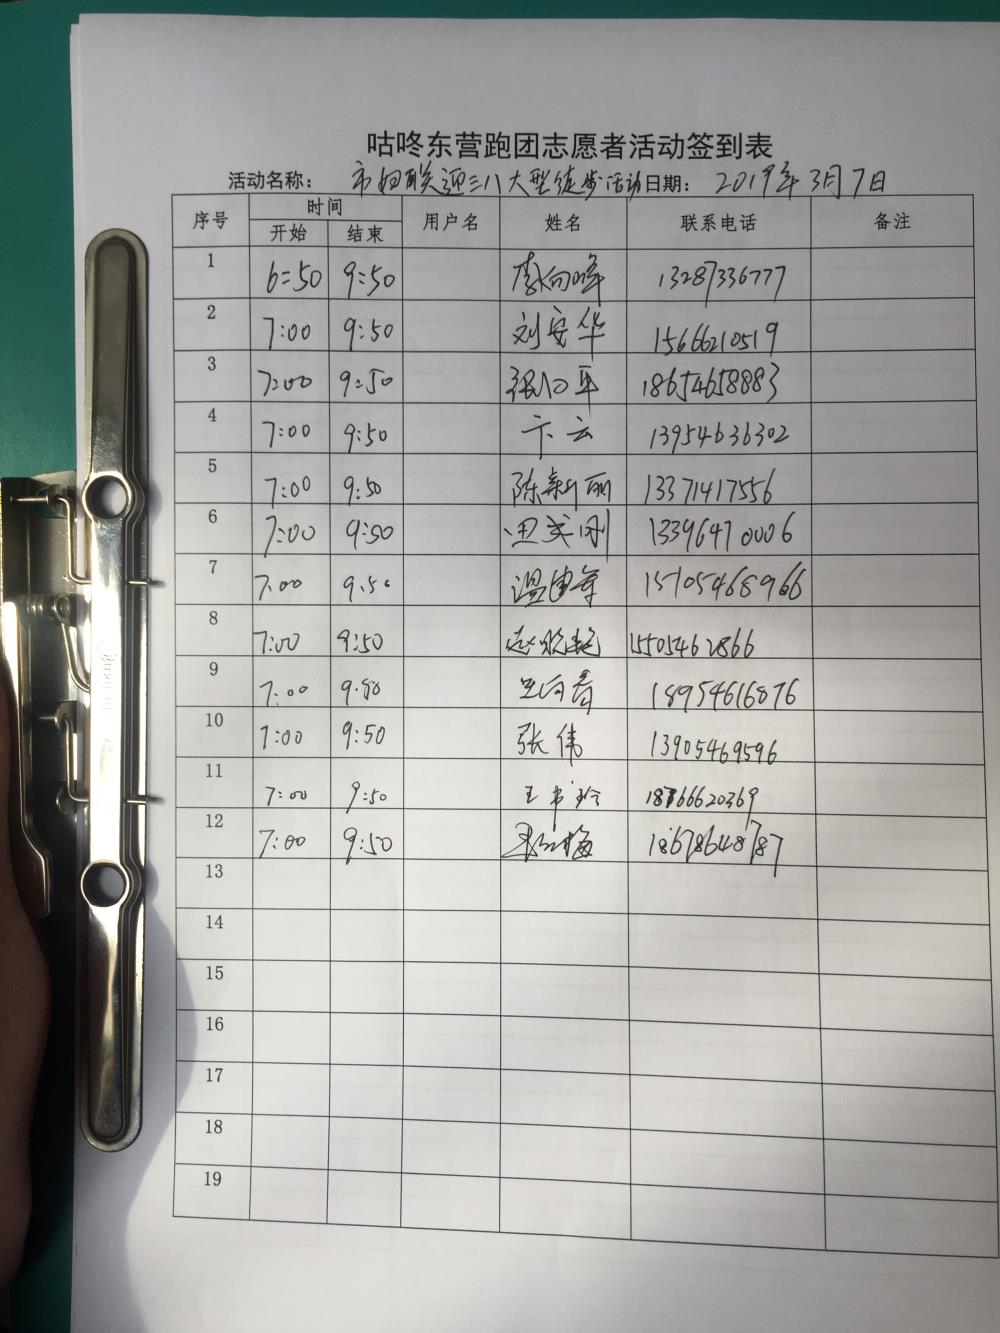 咕咚东营跑团志愿者活动签到表
活动名称： 市妇联迎三八大型徒步活动 日期： 2019年3月7日
序号 时间 用户名 姓名 联系电话 备注
开始 结束
1 6:50 9:50 李向峰 13287336777
2 7:00 9:50 刘安华 15666210519
3 7:00 9:50 18654658883
4 7:00 9:50 卞云 13954636302
5 7:00 9:50 陈新丽 13371417556
6 7:00 9:50 13396470006
7 7:00 9:50 温建军 15105468966
8 7:00 9:50 赵 15505462866
9 7:00 9:50 王向春 18954616876
10 7:00 9:50 张伟 13905469596
11 7:00 9:50 王书玲 18766620369
12 7:00 9:50 梅 18678648787
13
14
15
16
17
18
19